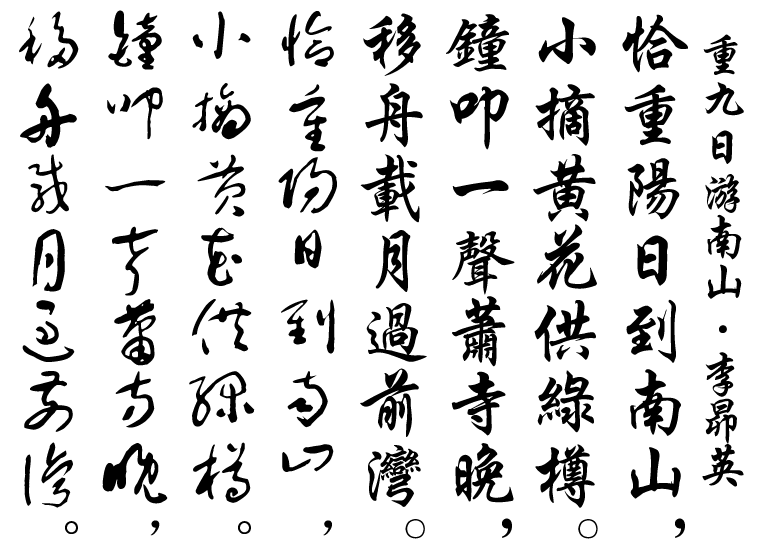 重九日游南山·李昴英
恰重陽日到南山，
小摘黄花供綠樽。
鐘叩一聲蕭寺晚，
移舟載月過前灣。
恰重陽日到南山，
小摘黄花供綠樽。
鐘叩一聲蕭寺晚，
移舟載月過前灣。